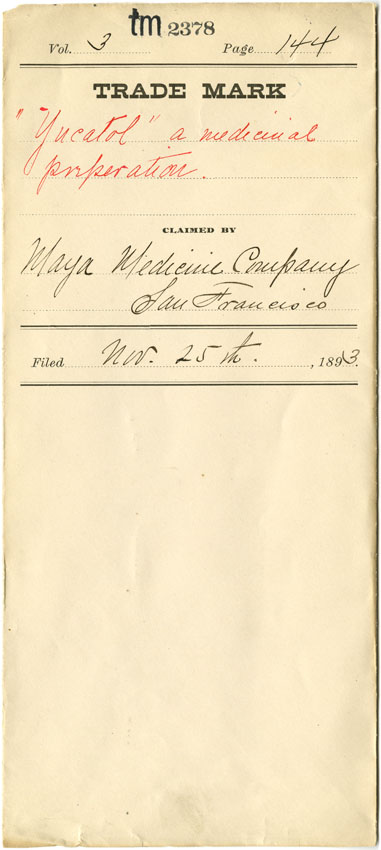 tm 2378
Vol. 3 Page 144
TRADE MARK
"Yucatol" a medicinal
preperation.
CLAIMED BY
Maya Medicine Company
San Francisco
Filed Nov. 25th. , 1893.